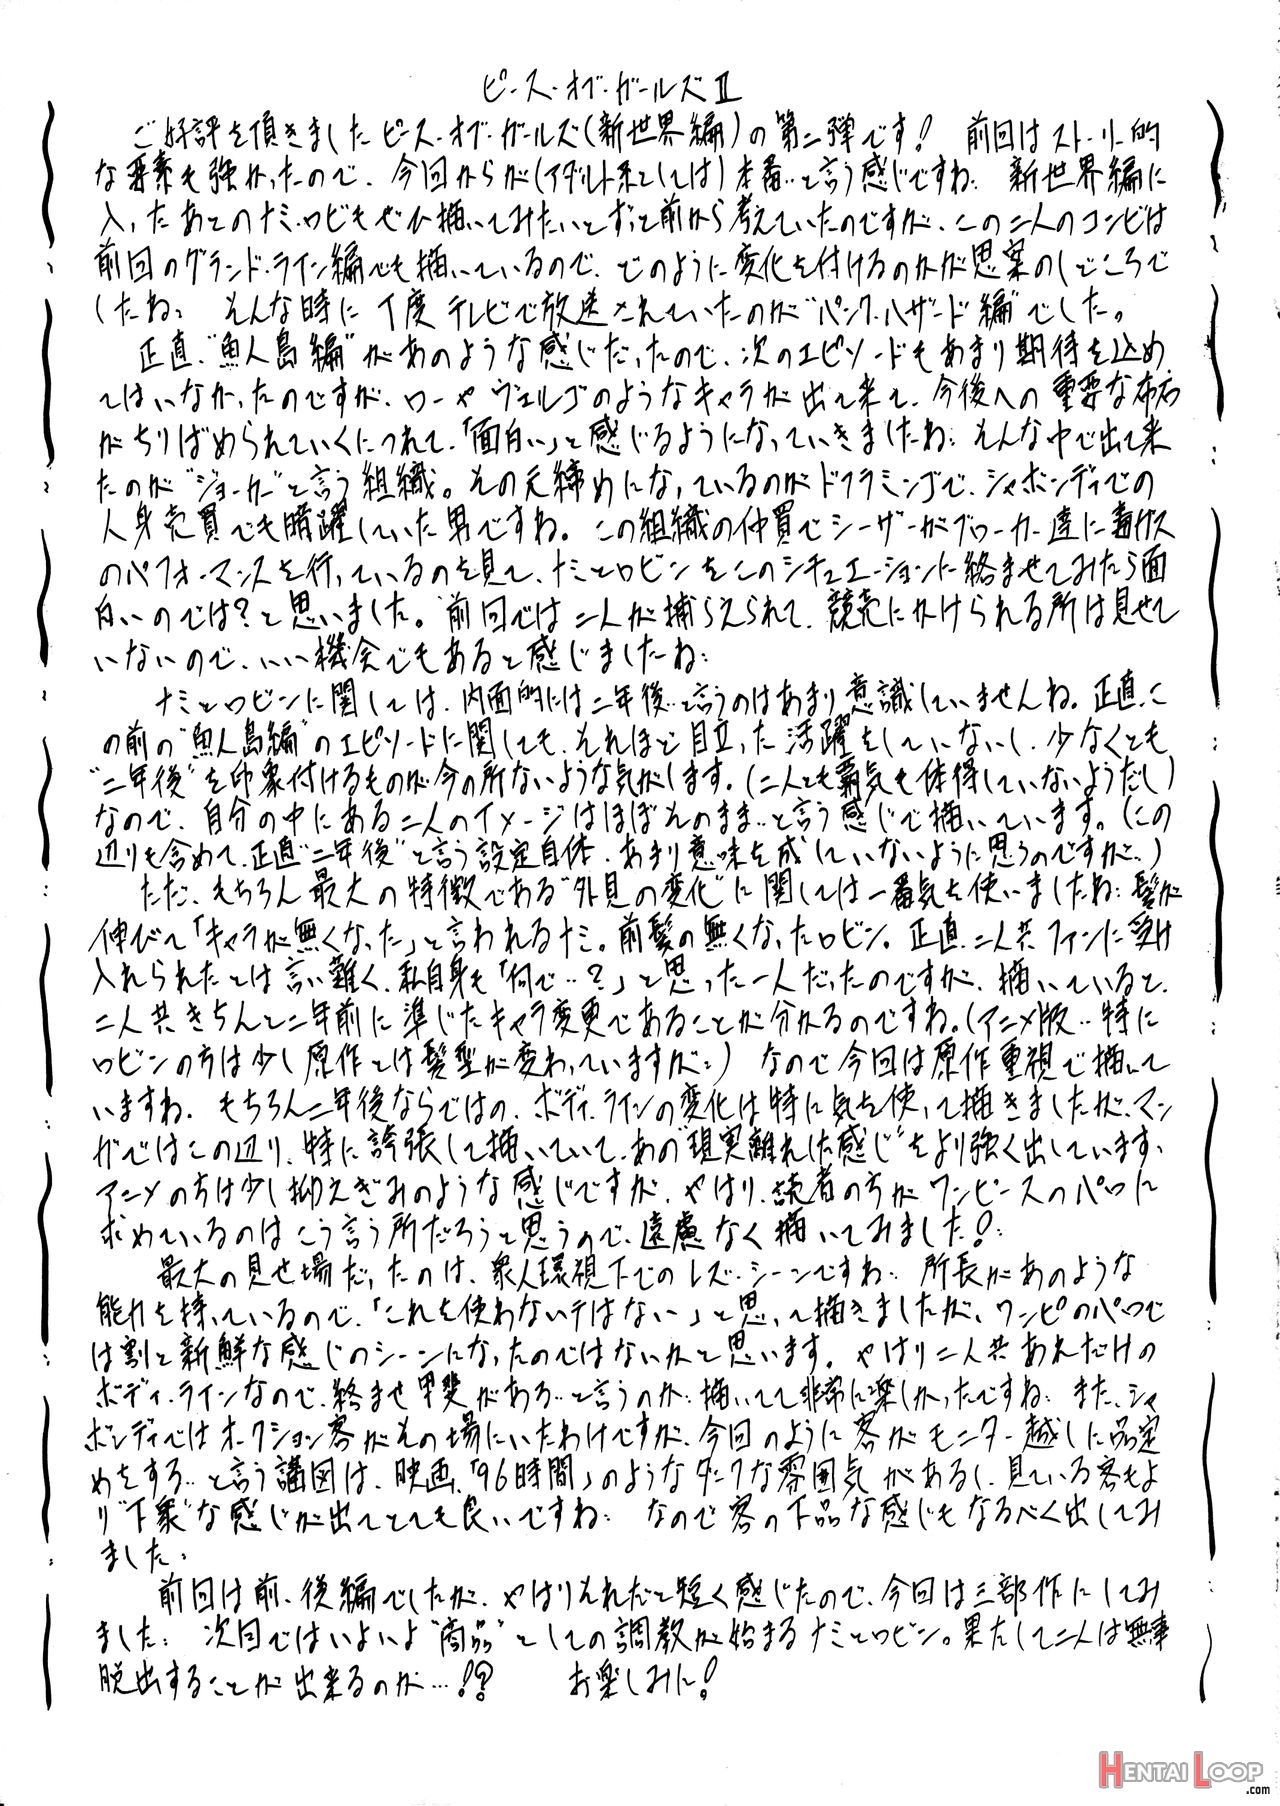 ピース・オブ・ガールズⅡ
ご好評を頂きましたピース・オブ・ガールズ(新世界編)の第二弾です! 前回はストーリー的
な要素も強かったので、今回からが(アダルト系としては)本番‥と言う感じですね‥ 新世界編に
入ったあとのナミ・ロビもぜひ描いてみたいとずっと前から考えていたのですが、この二人のコンビは
前回のグランド・ライン編でも描いているので、どのように変化を付けるのかが思案のしどころで
したね‥ そんな時に丁度テレビで放送されていたのが"パンク・ハザード編"でした。
正直、"魚人島編"があのような感じだったので、次のエピソードもあまり期待を込め
てはいなかったのですが、ローやヴェルゴのようなキャラが出て来て、今後への重要な布石
がちりばめられていくにつれて、「面白い」と感じるようになっていきましたね‥ そんな中で出て来
たのが"ジョーカー"と言う組織。その元締めになっているのがドフラミンゴで、シャボンディでの
人身売買でも暗躍していた男ですね。この組織の仲買でシーザーがブローカー達に毒ガス
のパフォーマンスを行っているのを見て、ナミとロビンをこのシチュエーションに絡ませてみたら面
白いのでは?と思いました。前回では二人が捕らえられて、競売にかけられる所は見せて
いないので、いい機会でもあると感じましたね‥
ナミとロビンに関しては、内面的には二年後‥と言うのはあまり意識していませんね。正直、こ
の前の"魚人島編"のエピソードに関しても、それほど目立った活躍をしていないし、少なくとも
"二年後"を印象付けるものが今の所ないような気がします。(二人とも覇気も体得していないようだし)
なので、自分の中にある二人のイメージはほぼそのまま‥と言う感じで描いています。(この
辺りも含めて、正直"二年後"と言う設定自体、あまり意味を成していないように思うのですが‥)
ただ、もちろん最大の特徴である"外見の変化"に関しては一番気を使いましたね‥髪が
伸びて「キャラが無くなった」と言われるナミ。前髪の無くなったロビン。正直、二人共ファンに受け
入れられたとは言い難く、私自身も「何で‥?」と思った一人だったのですが、描いていると、
二人共きちんと二年前に準じたキャラ変更であることが分かるのですね。(アニメ版‥特に
ロビンの方は少し原作とは髪型が変わっていますが‥) なので今回は原作重視で描いて
いますね。もちろん二年後ならではの、ボディ・ラインの変化は特に気を使って描きましたが、マン
ガではこの辺り、特に誇張して描いていて、あの"現実離れした感じ"をより強く出しています。
アニメの方は少し抑えぎみのような感じですが、やはり、読者の方がワンピースのパロに
求めているのはこう言う所だろうと思うので、遠慮なく描いてみました!
最大の見せ場だったのは、衆人環視下でのレズ・シーンですね‥ 所長があのような
能力を持っているので、「これを使わないテはない」と思って描きましたが、ワンピのパロで
は割と新鮮な感じのシーンになったのではないかと思います。やはり二人共あれだけの
ボディ・ラインなので、絡ませ甲斐がある‥と言うのか‥描いてて非常に楽しかったですね‥ また、シャ
ボンディではオークション客がその場にいたわけですが、今回のように客がモニター越しに品定
めをする‥と言う講図は、映画、「96時間」のようなダークな雰囲気があるし、見ている客もよ
り"下衆"な感じが出てとても良いですね‥ なので客の下品な感じもなるべく出してみ
ました。
前回は前、後編でしたが、やはりそれだと短く感じたので、今回は三部作にしてみ
ました‥ 次回ではいよいよ"商品"としての調教が始まるナミとロビン。果たして二人は無事
脱出することが出来るのか…!? お楽しみに!
HENTAI LOOP
.com